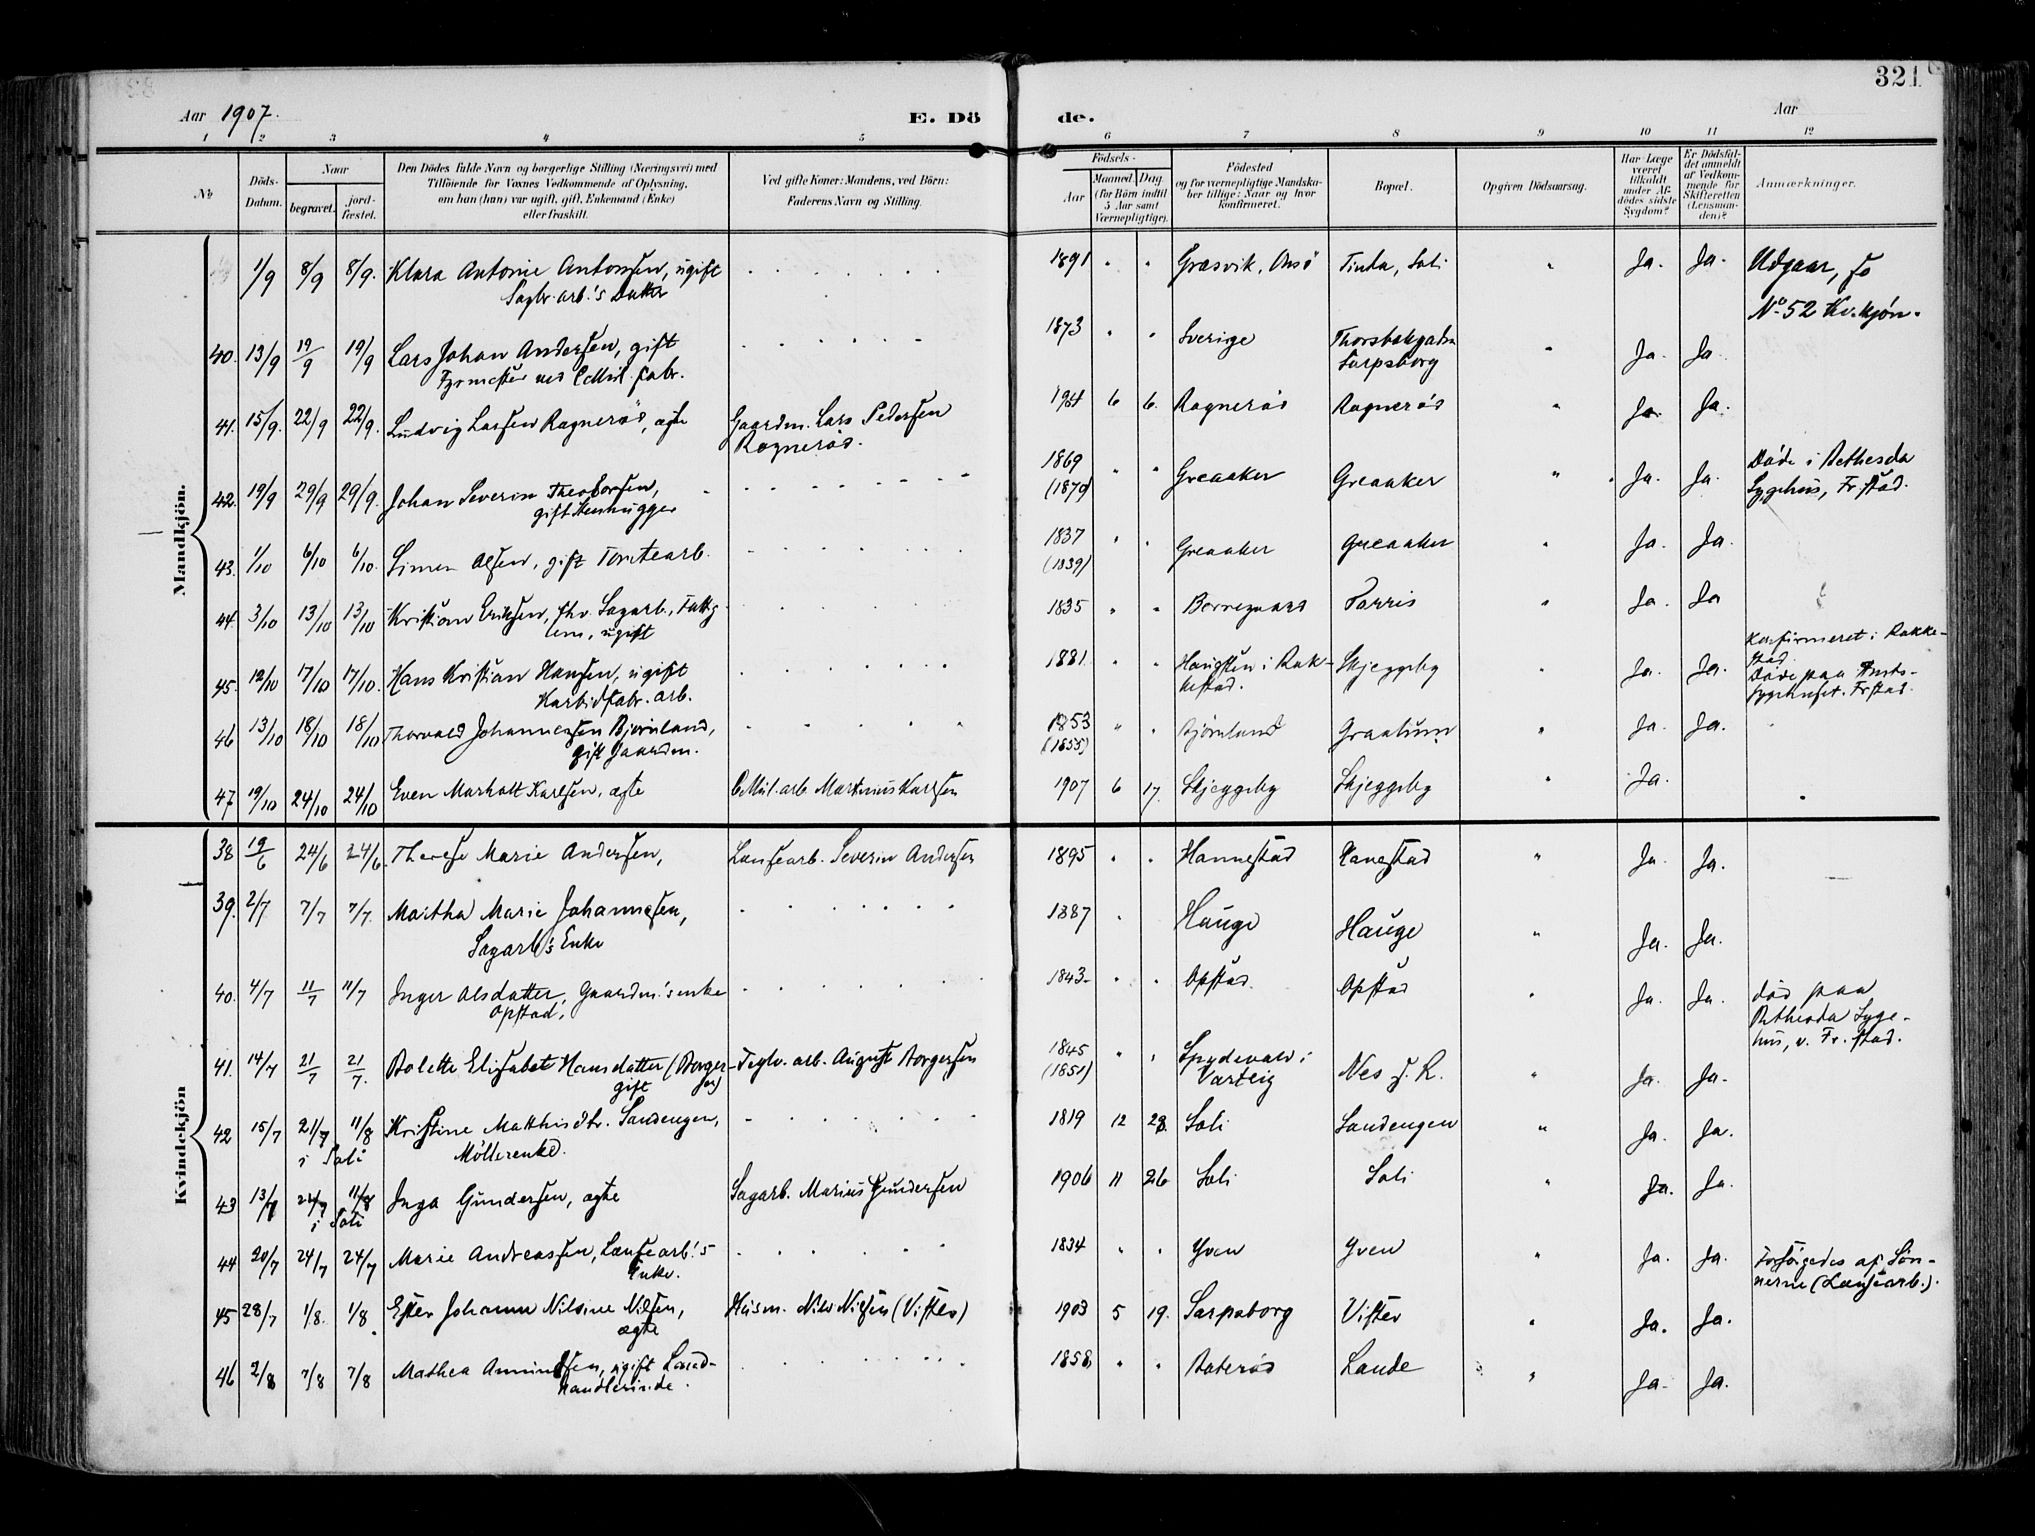 321
Aar 1907. E. Dö de. Aar
1 2 3 4 5 6 7 8 9 10 11 12
No
Döds-Datum.
Naar
begravet.
jord-fæstet.
Den Dödes fulde Navn og borgerlige Stilling (Næringsvei) med
Tilföiende for Voxnes Vedkommende af Oplysning,
om hun (han) var ugift, gift, Enkemand (Enke)
eller fraskilt.
Ved gifte Koner: Mandens, ved Börn:
Faderens Navn og Stilling.
Födsels-
Aar
Maaned. Dag
(for Börn indtil
5 Aar samt
Værnepligtige).
Födested
og for værnepligtige Mandska-
ber tillige: Naar og hvor
konfirmeret.
Bopæl.
Opgiven Dödsaarsag.
Har Læge
været
tilkaldt
under Af-
dödes sidste
Sygdom?
Er Dödsfal-
det anmeldt
af Vedkom-
mende for
Skifteretten
(Lensman-
den)?
Anmærkninger.
Mandkjön.
1/9 8/9 8/9. Klara Antonie Antonsen, ugift 1891 " " Græsvik, Onsö Tinda, Soli " Ja. Ja. Udgaar, se
Sagbr. arb.'s Datter No 52 Kv.kjøn.
40. 13/9 19/9 19/9 Lars Johan Andersen, gift 1873 " " Sverige Thorsbekgaden " Ja. Ja
Fyrmester ved Cellul. fabr. Sarpsborg
41. 15/9. 22/9 22/9. Ludvig Larsen Ragnerød, ægte Gaardm. Lars Pedersen 1904 6 6. Ragnerød Ragnerød " Ja. Ja.
Ragnerød.
42. 19/9 29/9 29/9. Johan Severin Theodorsen, 1869 " " Greaaker Greaaker " Ja. Ja. Døde i Bethesda
gift Stenhugger (1870) Sygehus, Fr.stad.
43. 1/10 6/10 6/10. Simen Olsen, gift Tomtearb. 1837 " " Greaaker Greaaker " Ja. Ja.
(1839)
44. 3/10 13/10 13/10 Kristian Eriksen, fhv. Sagarb., Fattig- 1835 " " Borregaard Torris " Ja. Ja
lem, ugift
45. 12/10 17/10 17/10. Hans Kristian Hansen, ugift 1881 " " Haugsten i Rak- Skjeggeby " Ja. Ja. Konfirmeret i Rakke-
Karbidfabr. arb. kestad. stad.
Døde paa Amts-
sygehuset. Fr.stad.
46 13/10 18/10 18/10 Thorvald Johannesen Bjørnland, 1853 " " Bjørnland Graalum " Ja. Ja.
gift Gaardm. (1855)
47 19/10 24/10 24/10 Even Marholt Karlsen, ægte Cellul. arb. Martinius Karlsen 1907 6 17. Skjeggeby Skjeggeby " Ja.
Kvindekjön
38 19/6 24/6 24/6. Therese Marie Andersen, Landsearb. Severin Andersen 1895 " " Hannestad Hanestad " Ja. Ja.
39. 2/7 7/7 7/7. Martha Marie Johannesen, 1887 " Hauge Hauge " Ja. Ja.
Sagarb's Enke
40. 4/7 11/7 11/7 Inger Olsdatter, Gaardm.'s enke 1843 " " Opstad. Opstad " Ja. Ja. død paa
Opstad. Bethesda Syge-
hus, v. Fr.stad.
41. 14/7 21/7 21/7. Bolette Elisabet Hansdatter (Borger- Teglv. arb. August Borgersen 1845 " " Spydevold i Nes J. L. " Ja. Ja.
sen) gift (1851) Varteig
42 15/7 21/7 11/8 Kristine Matthisdtr. Sandengen, 1819 12 28. Soli Sandengen " Ja. Ja.
i Soli Møllerenke.
43 13/7 21/7 11/8 Inga Gundersen, ægte Sagarb. Marius Gundersen 1906 11 26 Soli Soli " Ja. Ja.
i Soli
44 20/7 24/7 24/7 Marie Andreassen, Landsearb.'s 1834 " " Yven Yven " Ja. Ja. Forsørgedes af Søn-
Enke. nerne (Landsearb.).
45 28/7 1/8. 1/8 Ester Johanne Nilsine Nilsen, Husm. Nils Nilsen (Vister) 1903 5 19. Sarpsborg Vister " Ja. Ja.
ægte
46 2/8 7/8 7/8 Mathea Amundsen, ugift Land- 1858 " " Baterød Lande " Ja. Ja.
handlerinde.